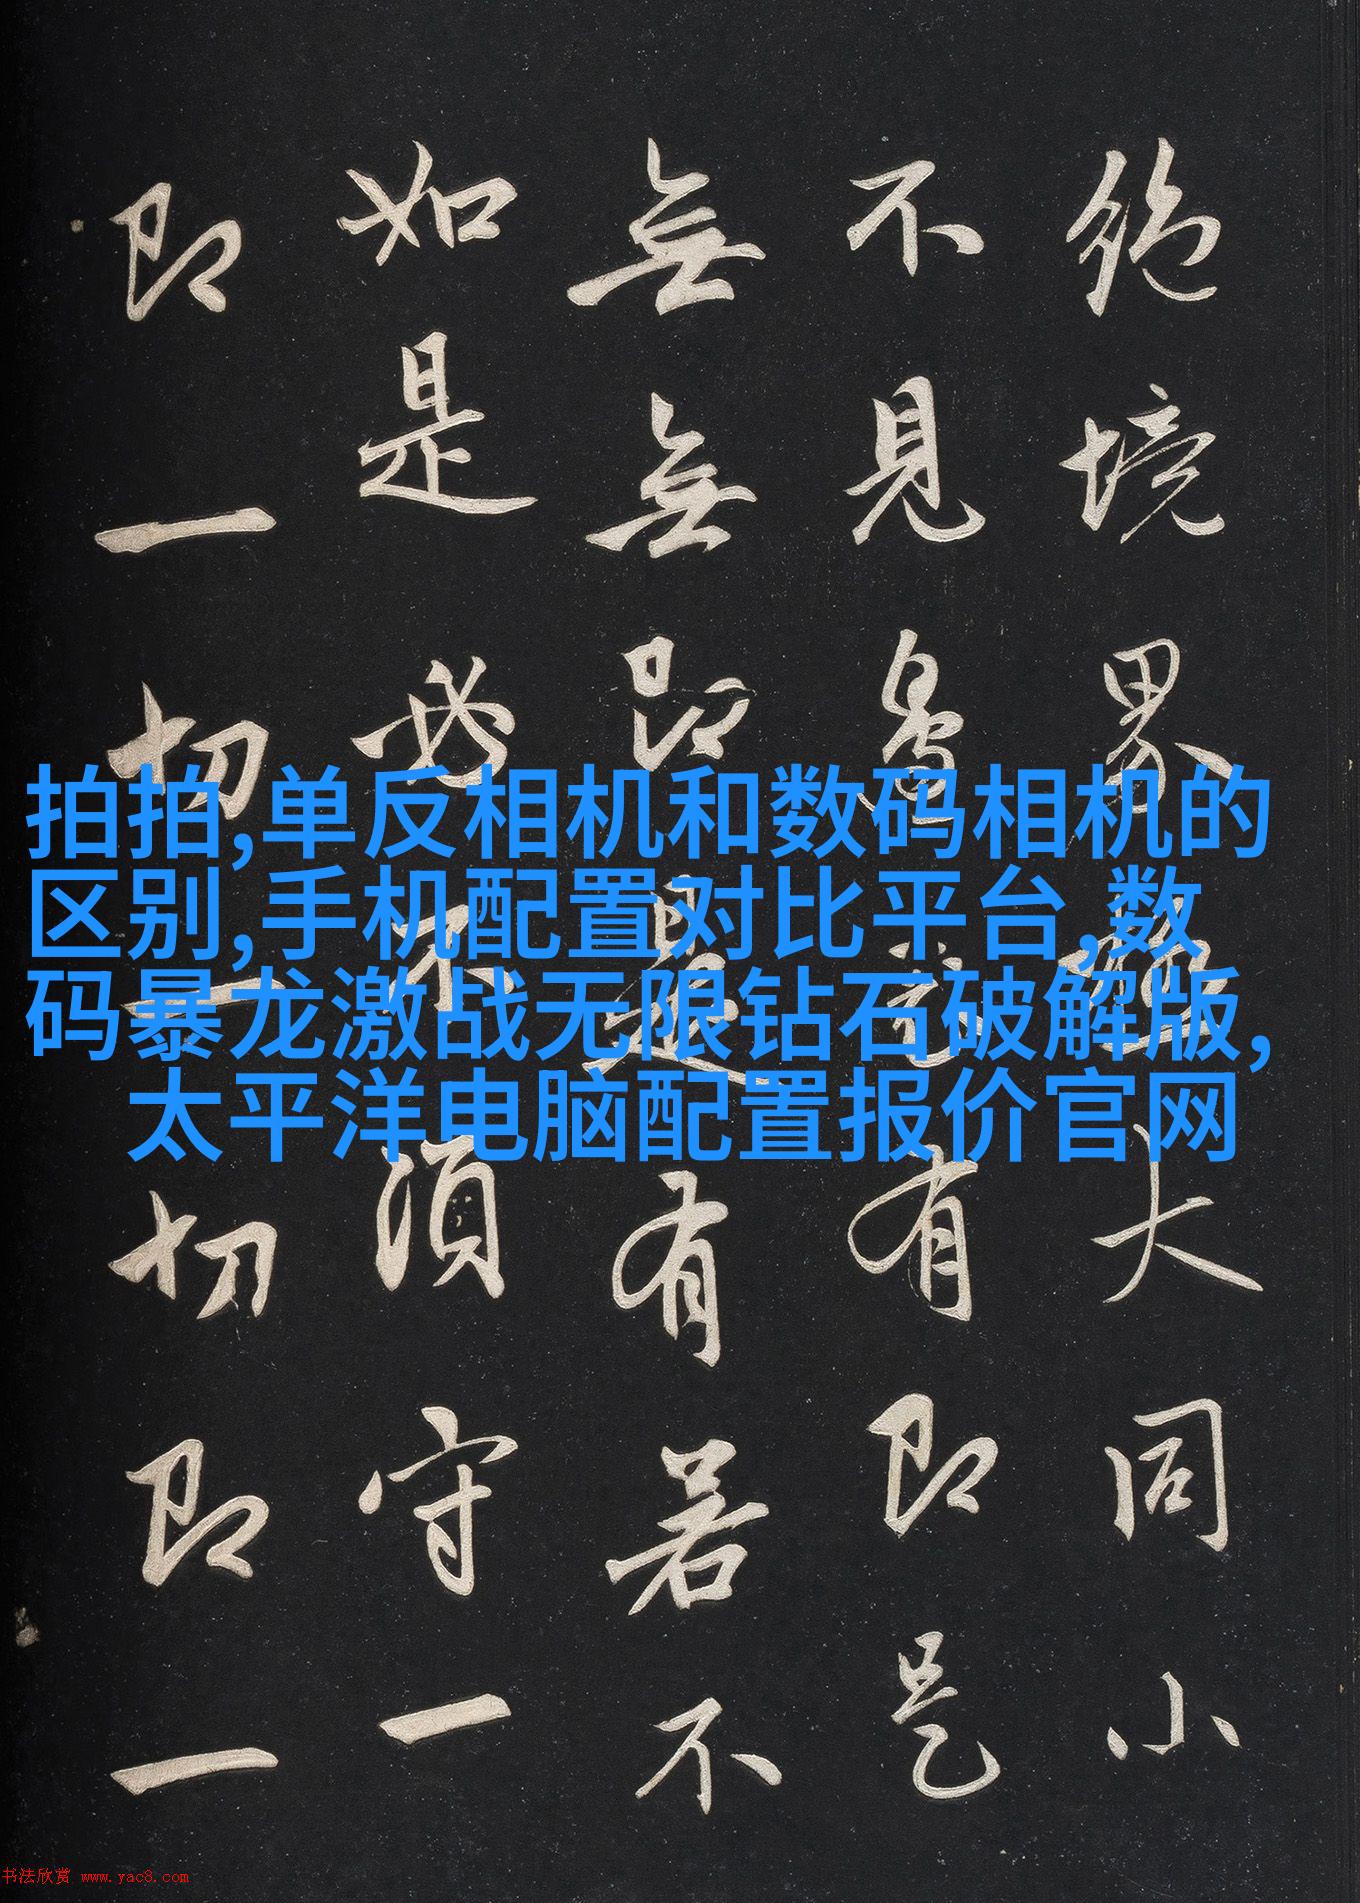 绝境界極大同小
不見邊表有即是
無無即是有若不
如是必不須守一
即一切一切即一
拍拍,单反相机和数码相机的
区别,手机配置对比平台,数
码暴龙激战无限钻石破解版,
太平洋电脑配置报价官网
书法欣赏 www.yac8.com